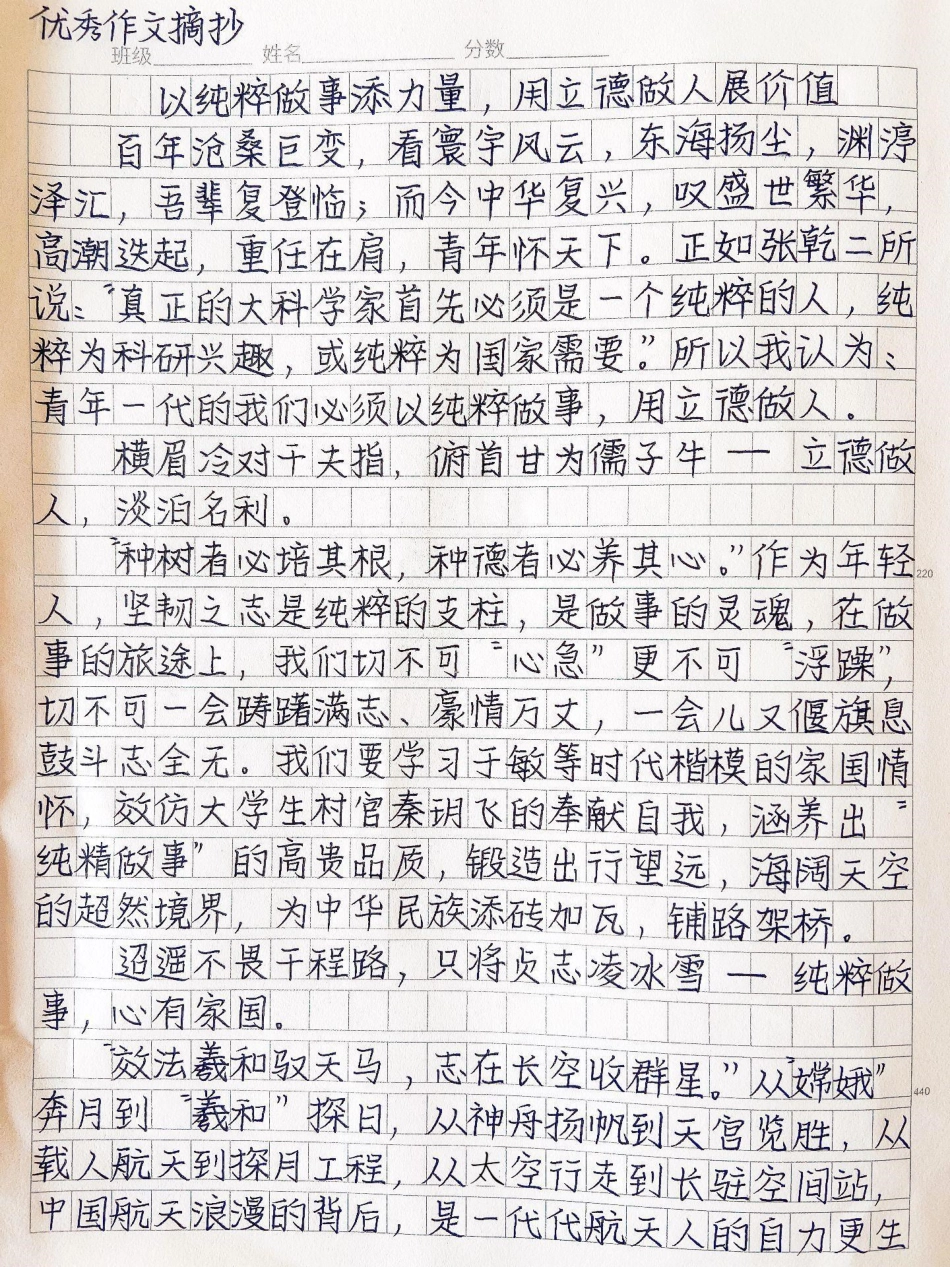 优秀作文摘抄
班级 姓名 分数
以纯粹做事添力量，用立德做人展价值
百年沧桑巨变，看寰宇风云，东海扬尘，渊渟
泽汇，吾辈复登临；而今中华复兴，叹盛世繁华，
高潮迭起，重任在肩，青年怀天下。正如张乾二所
说："真正的大科学家首先必须是一个纯粹的人，纯
粹为科研兴趣，或纯粹为国家需要。"所以我认为：
青年一代的我们必须以纯粹做事，用立德做人。
横眉冷对千夫指，俯首甘为儒子牛 — 立德做
人，淡泊名利。
"种树者必培其根，种德者必养其心。"作为年轻
220
人，坚韧之志是纯粹的支柱，是做事的灵魂，在做
事的旅途上，我们切不可"心急"更不可"浮躁"，
切不可一会踌躇满志、豪情万丈，一会儿又偃旗息
鼓斗志全无。我们要学习于敏等时代楷模的家国情
怀，效仿大学生村官秦玥飞的奉献自我，涵养出"
纯精做事"的高贵品质，锻造出行望远，海阔天空
的超然境界，为中华民族添砖加瓦，铺路架桥。
迢遥不畏千程路，只将贞志凌冰雪 — 纯粹做
事，心有家国。
"效法羲和驭天马，志在长空收群星。"从"嫦娥"
440
奔月到"羲和"探日，从神舟扬帆到天宫览胜，从
载人航天到探月工程，从太空行走到长驻空间站，
中国航天浪漫的背后，是一代代航天人的自力更生